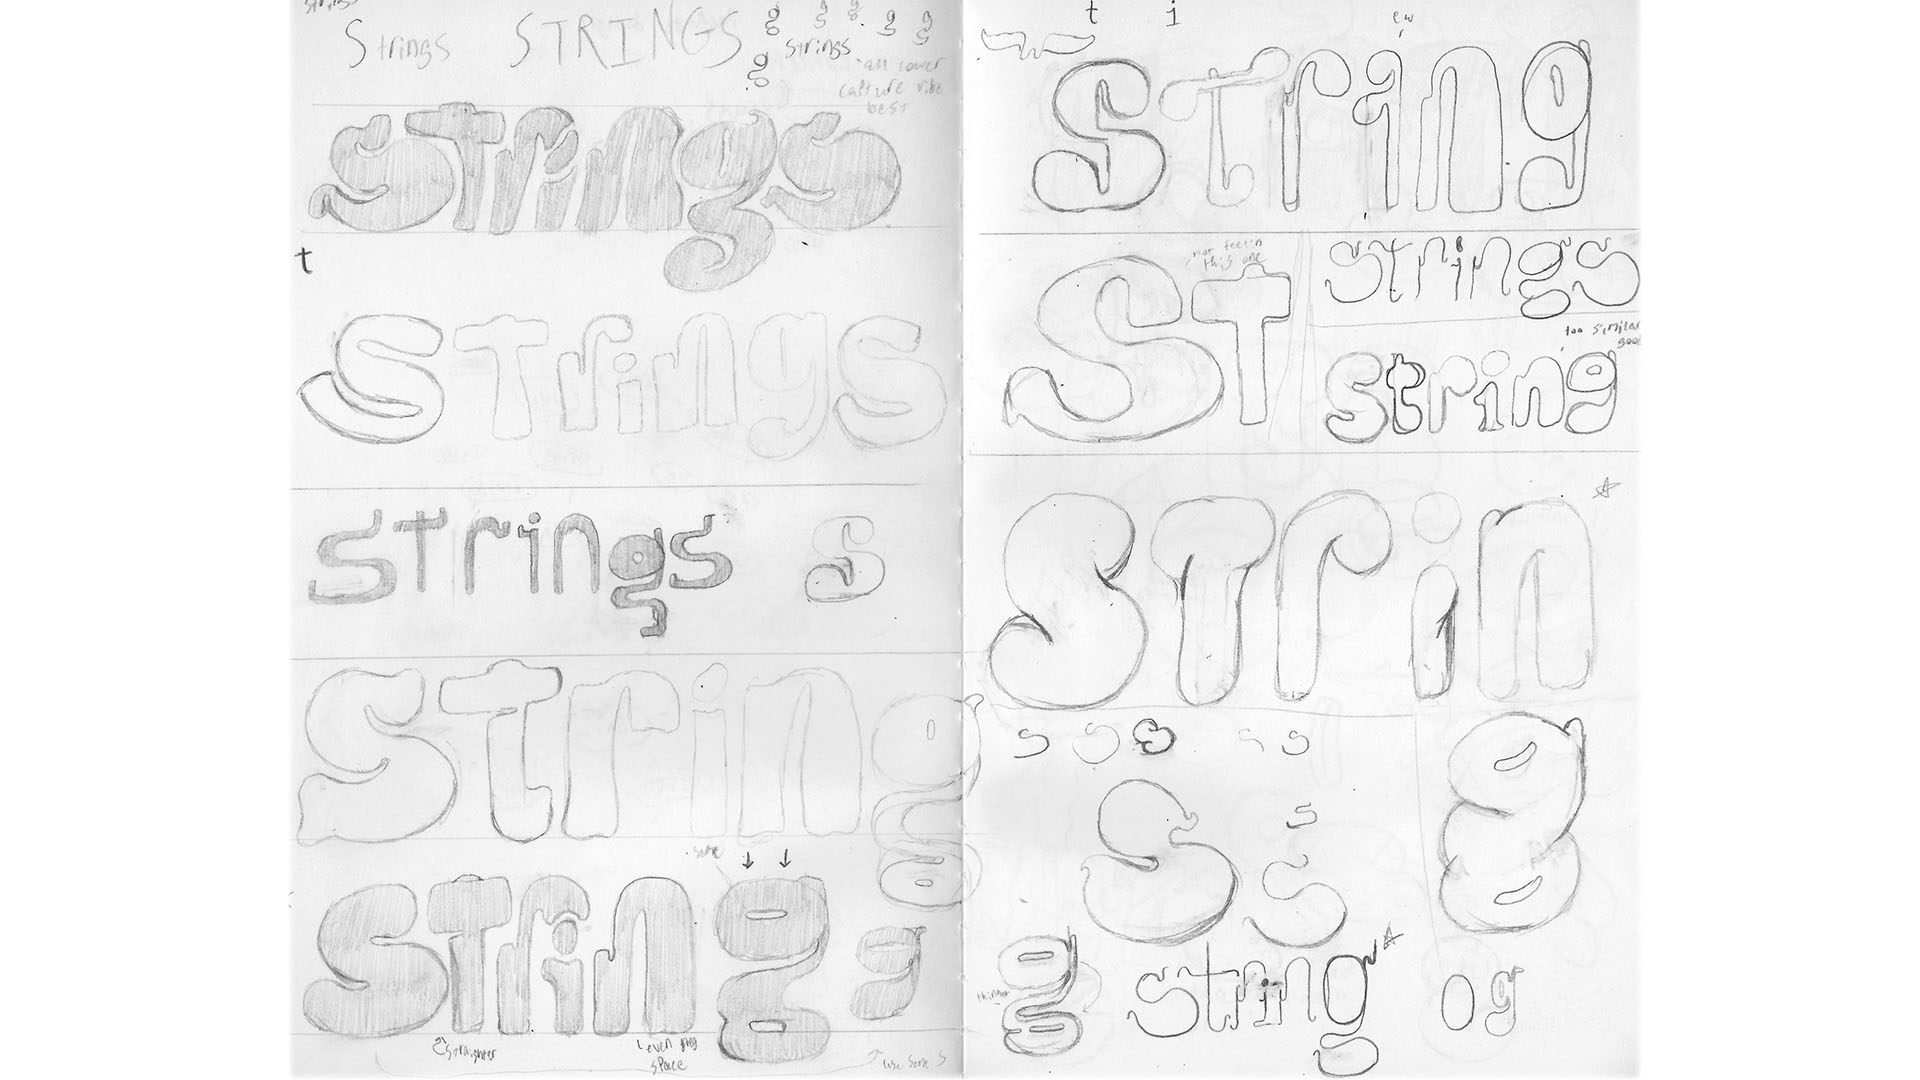 strings
Strings
STRINGS
g g g g g
g
strings
all lower
capture vibe
best
strings
t
Strings
strings
s
String
same
String
g
straighter
even neg
space
use same S
t i
ew
String
not feelin
this one
ST
strings
too similar
good
string
STrin
s s s s s
S
s
s
g
g
thinner
string
o g